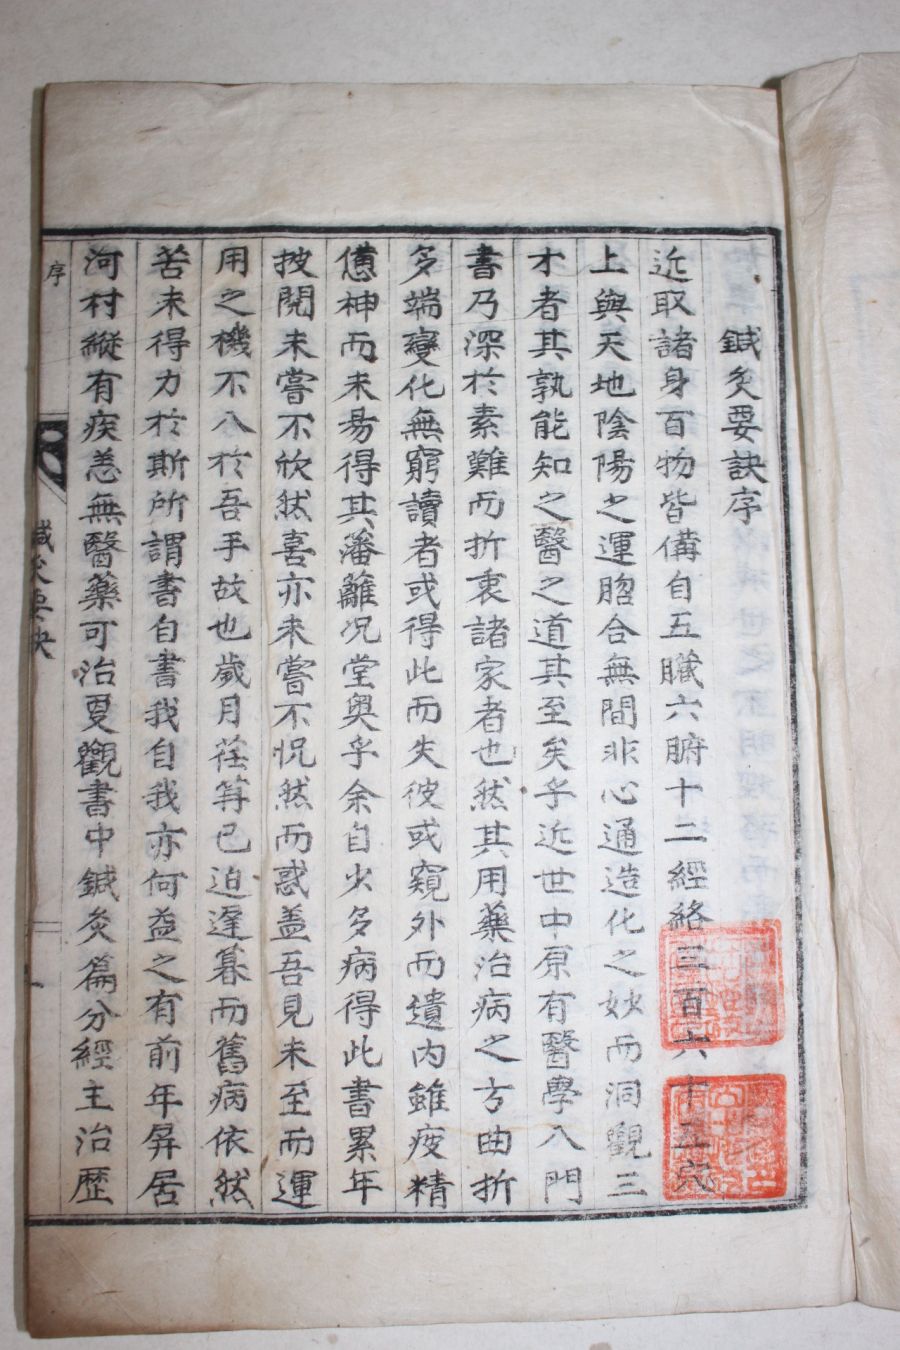 鍼灸要訣序
近取諸身百物皆俻自五臟六腑十二經絡三百六十五穴
上與天地陰陽之運脗合無間非心通造化之妙而洞觀三
才者其孰能知之醫之道其至矣乎近世中原有醫學入門
書乃深於素難而折衷諸家者也然其用藥治病之方曲折
多端變化無窮讀者或得此而失彼或窺外而遺內雖疲精
憊神而未易得其藩籬况堂奧乎余自少多病得此書累年
披閱未嘗不欣然喜亦未嘗不怳然而惑盖吾見未至而運
用之機不入於吾手故也歲月荏苒已迫遲暮而舊病依然
苦未得力於斯所謂書自書我自我亦何益之有前年屏居
河村縱有疾恙無醫藥可治夏觀書中鍼灸篇分經主治歷
序
鍼灸要訣